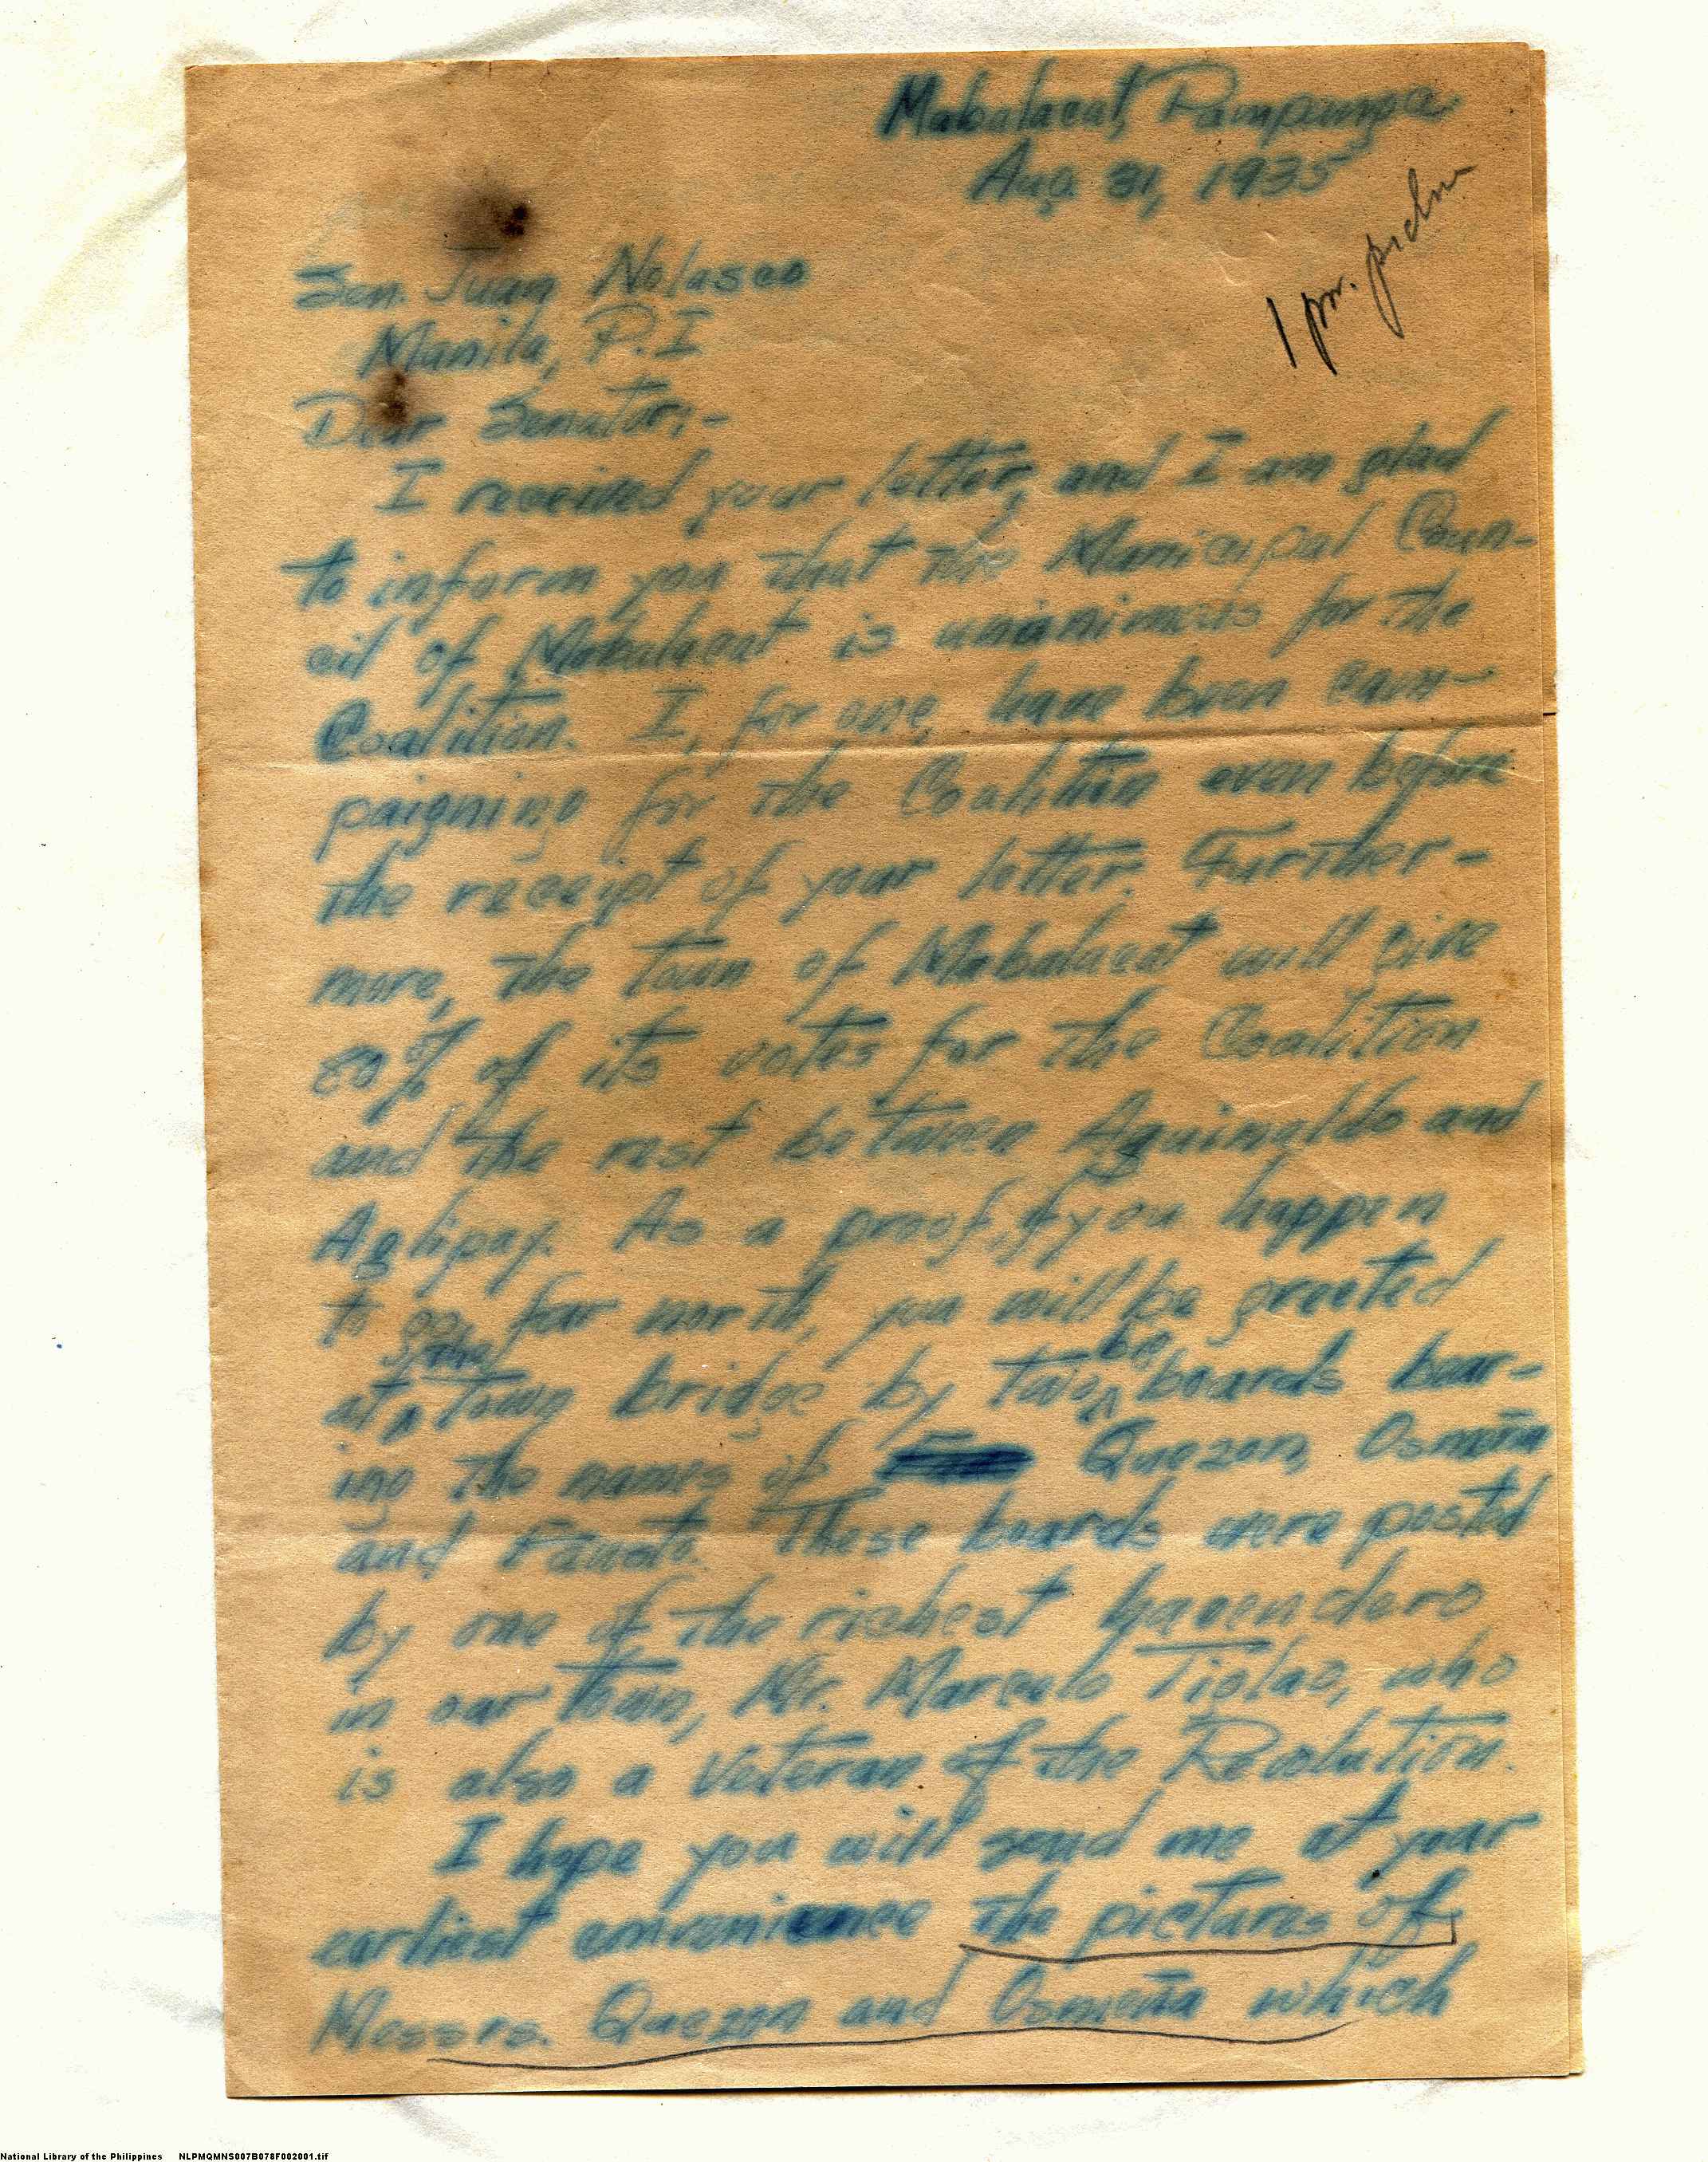 Mabalacat, Pampanga
Aug. 31, 1935
1 pr.
Sen. Juan Nolasco
Manila, P.I
Dear Senator:-
I received your letter, and I am glad
to inform you that the Municipal Coun-
cil of Mabalacat is unanimous for the
Coalition. I, for one, have been cam-
paigning for the Coalition even before
the receipt of your letter. Further-
more, the town of Mabalacat will give
80% of its votes for the Coalition
and the rest between Aguinaldo and
Aglipay. As a proof, if you happen
to go far north, you will be greeted
at a town bridge by two big boards bear-
ing the names of Quezon, Osmeña
and Fausto. These boards were posted
by one of the richest hacendero
in our town, Mr. Marcelo Tiglao, who
is also a Veteran of the Revolution.
I hope you will send me at your
earliest convenience the pictures of
Messrs. Quezon and Osmeña which
National Library of the Philippines NLPMQMNS007B078F002001.tif